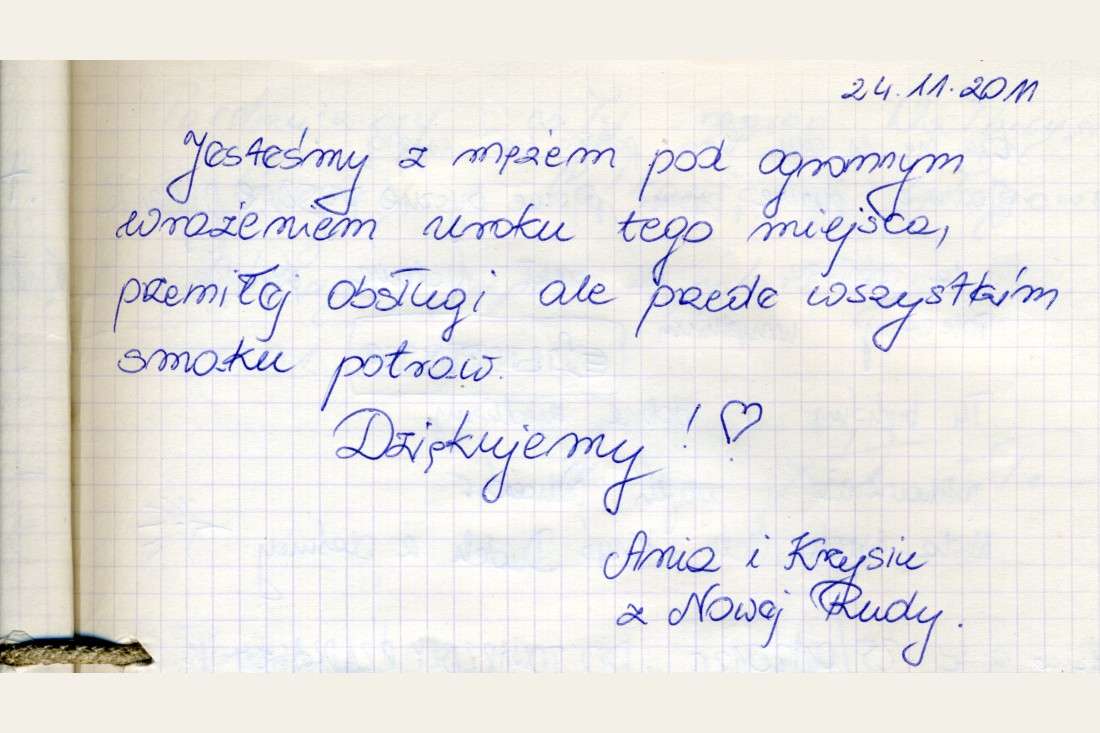 24.11.2011
Jesteśmy z mężem pod ogromnym
wrażeniem uroku tego miejsca,
przemiłej obsługi ale przede wszystkim
smaku potraw.
Dziękujemy! ♡
Ania i Krzysiu
z Nowej Rudy.